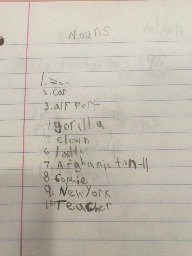 Nouns
1. zoo
2. car
3. air port
4. gorilla
5. clown
6. latter
7. Afghanistan
8.
9. New York
10. Teacher